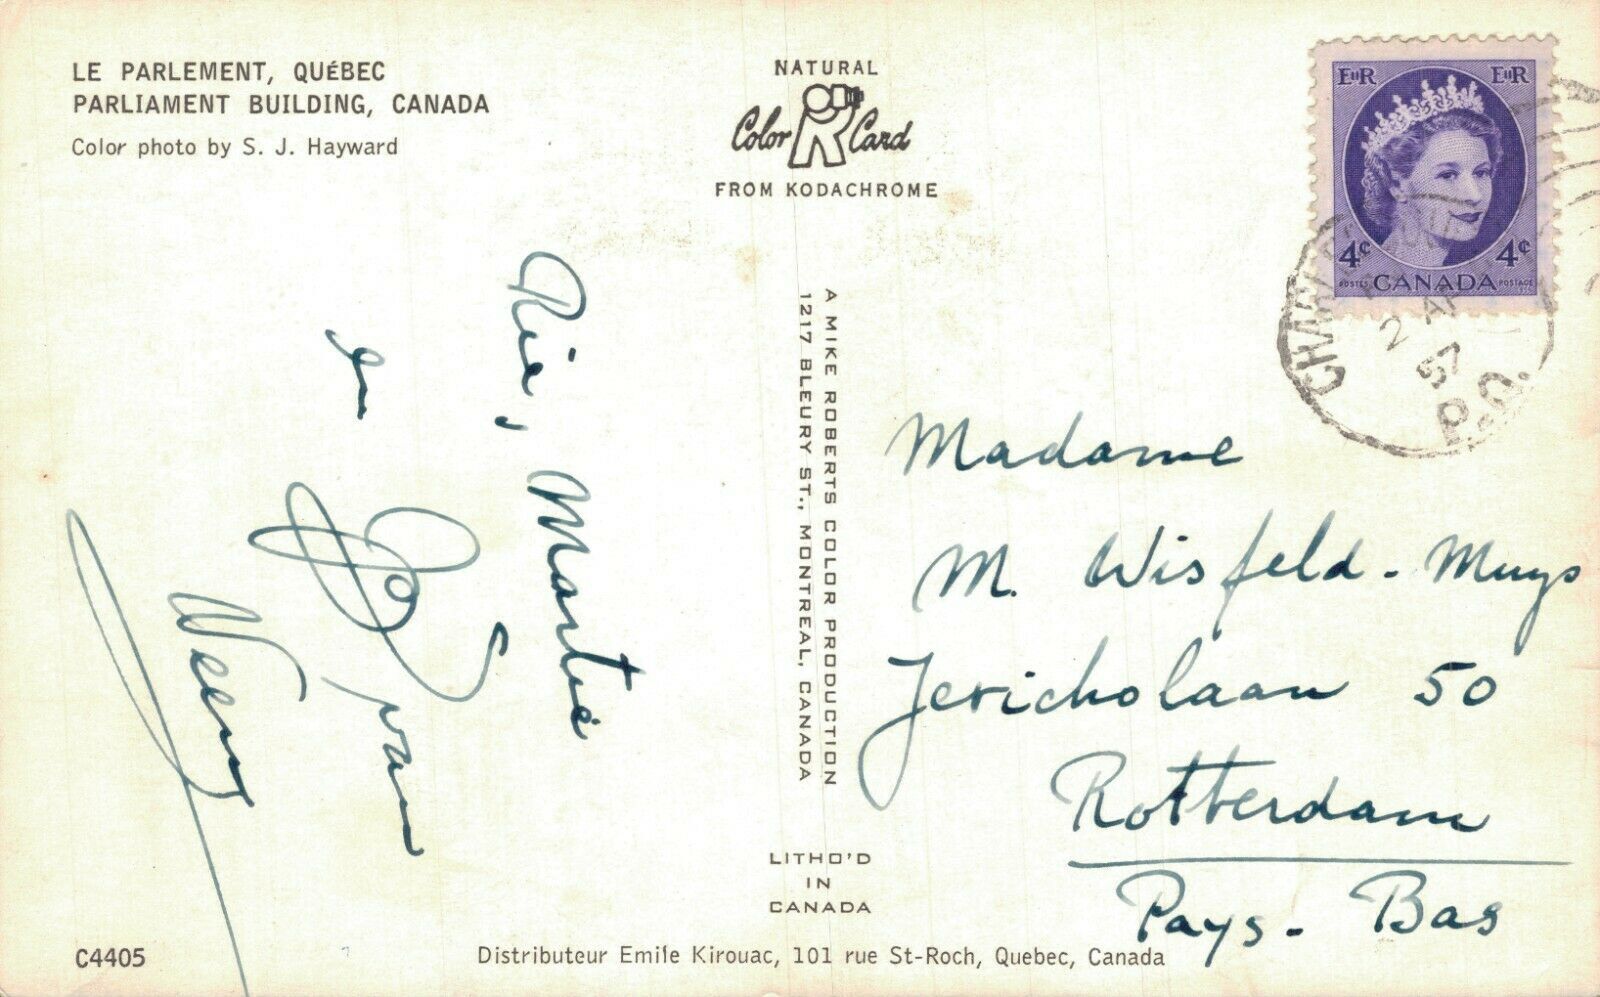 LE PARLEMENT, QUÉBEC
PARLIAMENT BUILDING, CANADA
Color photo by S. J. Hayward
NATURAL
Color Card
FROM KODACHROME
EIIR EIIR
4¢ 4¢
POSTES CANADA POSTAGE
2
57
P.Q.
Rie, Martie
en
van
Weeny
A MIKE ROBERTS COLOR PRODUCTION
1217 BLEURY ST., MONTREAL, CANADA
Madame
M. Wisfeld-Muys
Jericholaan 50
Rotterdam
Pays-Bas
LITHO'D
IN
CANADA
C4405
Distributeur Emile Kirouac, 101 rue St-Roch, Quebec, Canada